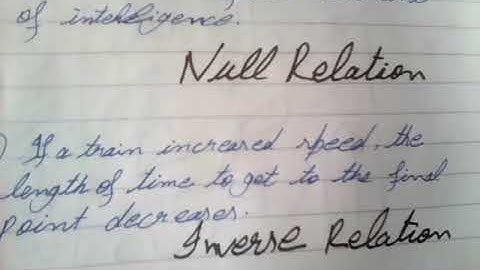 of intelligence.
Null Relation
) If a train increased speed, the
length of time to get to the final
point decreases.
Inverse Relation